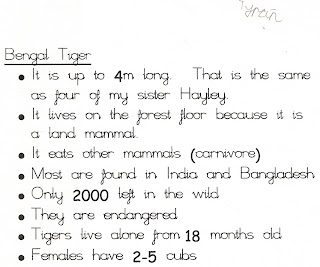 Bengal Tiger
• It is up to 4m long. That is the same
as four of my sister Hayley.
• It lives on the forest floor because it is
a land mammal.
• It eats other mammals (carnivore)
• Most are found in India and Bangladesh
• Only 2000 left in the wild
• They are endangered
• Tigers live alone from 18 months old
• Females have 2-5 cubs